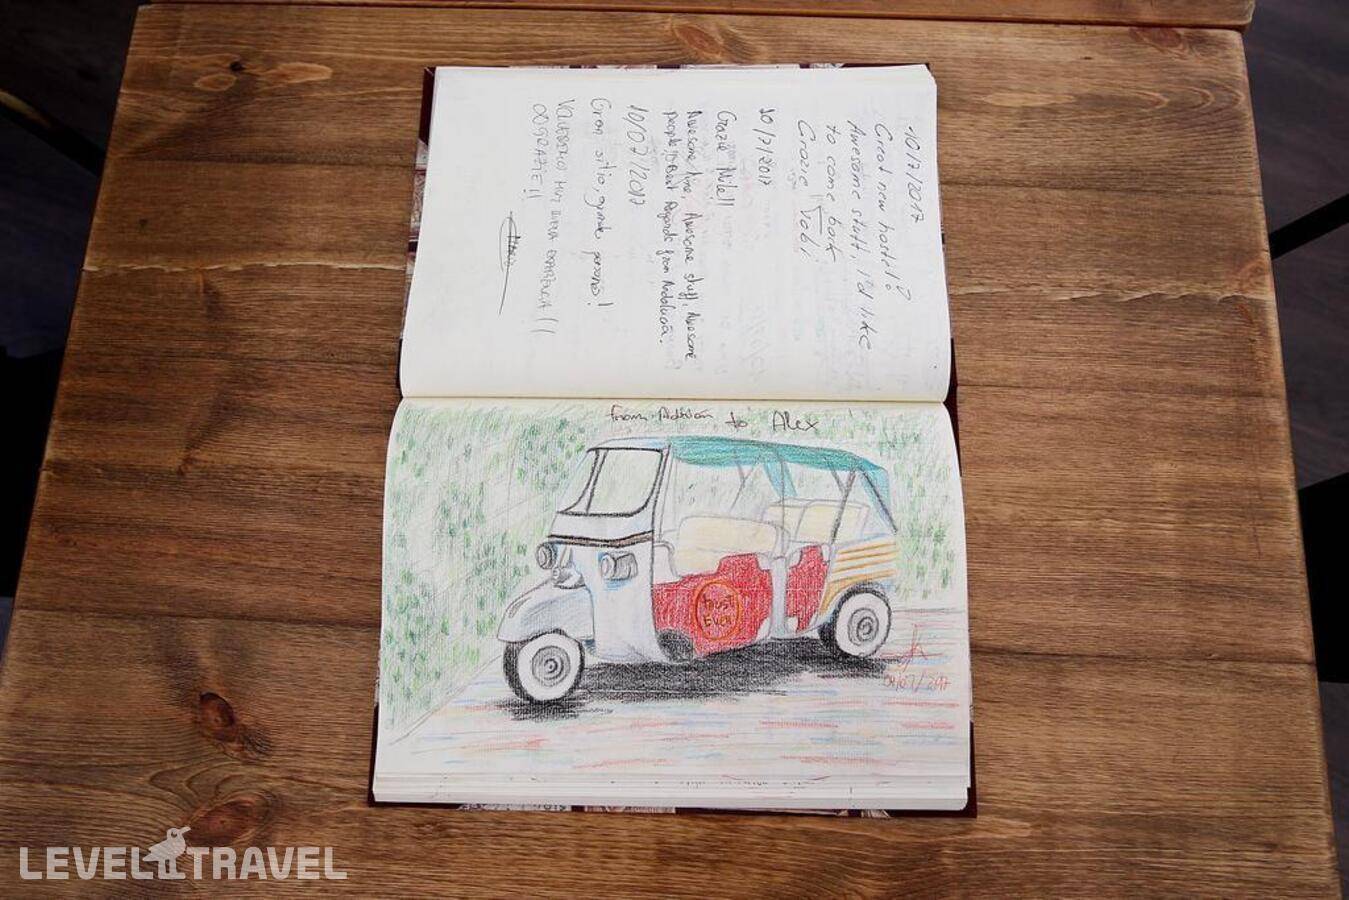 10/7/2017
Great new hostel!
Awesome stuff, I'd like
to come back
Grazie
10/7/2017
Grazie Mille!!
Awesome time, Awesome stuff, Awesome
people!! Best Regards from Andalucía.
10/07/2017
Gran sitio, grandes personas!
MUY BUENA EXPERIENCIA!!
GRAZIE!!
From Adrian to Alex
trust
/07/2017
LEVEL TRAVEL